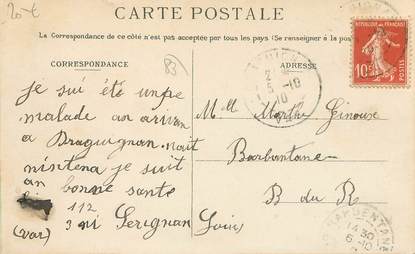 20 €
CARTE POSTALE
La Correspondance de ce côté n'est pas acceptée par tous les pays (Se renseigner à la poste
CORRESPONDANCE
83
ADRESSE
2
5 -10
10
10
je sui été un pe
malade an arivan
a Draguignan. mait
nintena je suit
an bonne sante
112
3 Serignan
(var)
Mell Marthe Ginoux
Barbentane
B du R
BARBENTANE
14 30
6 -10